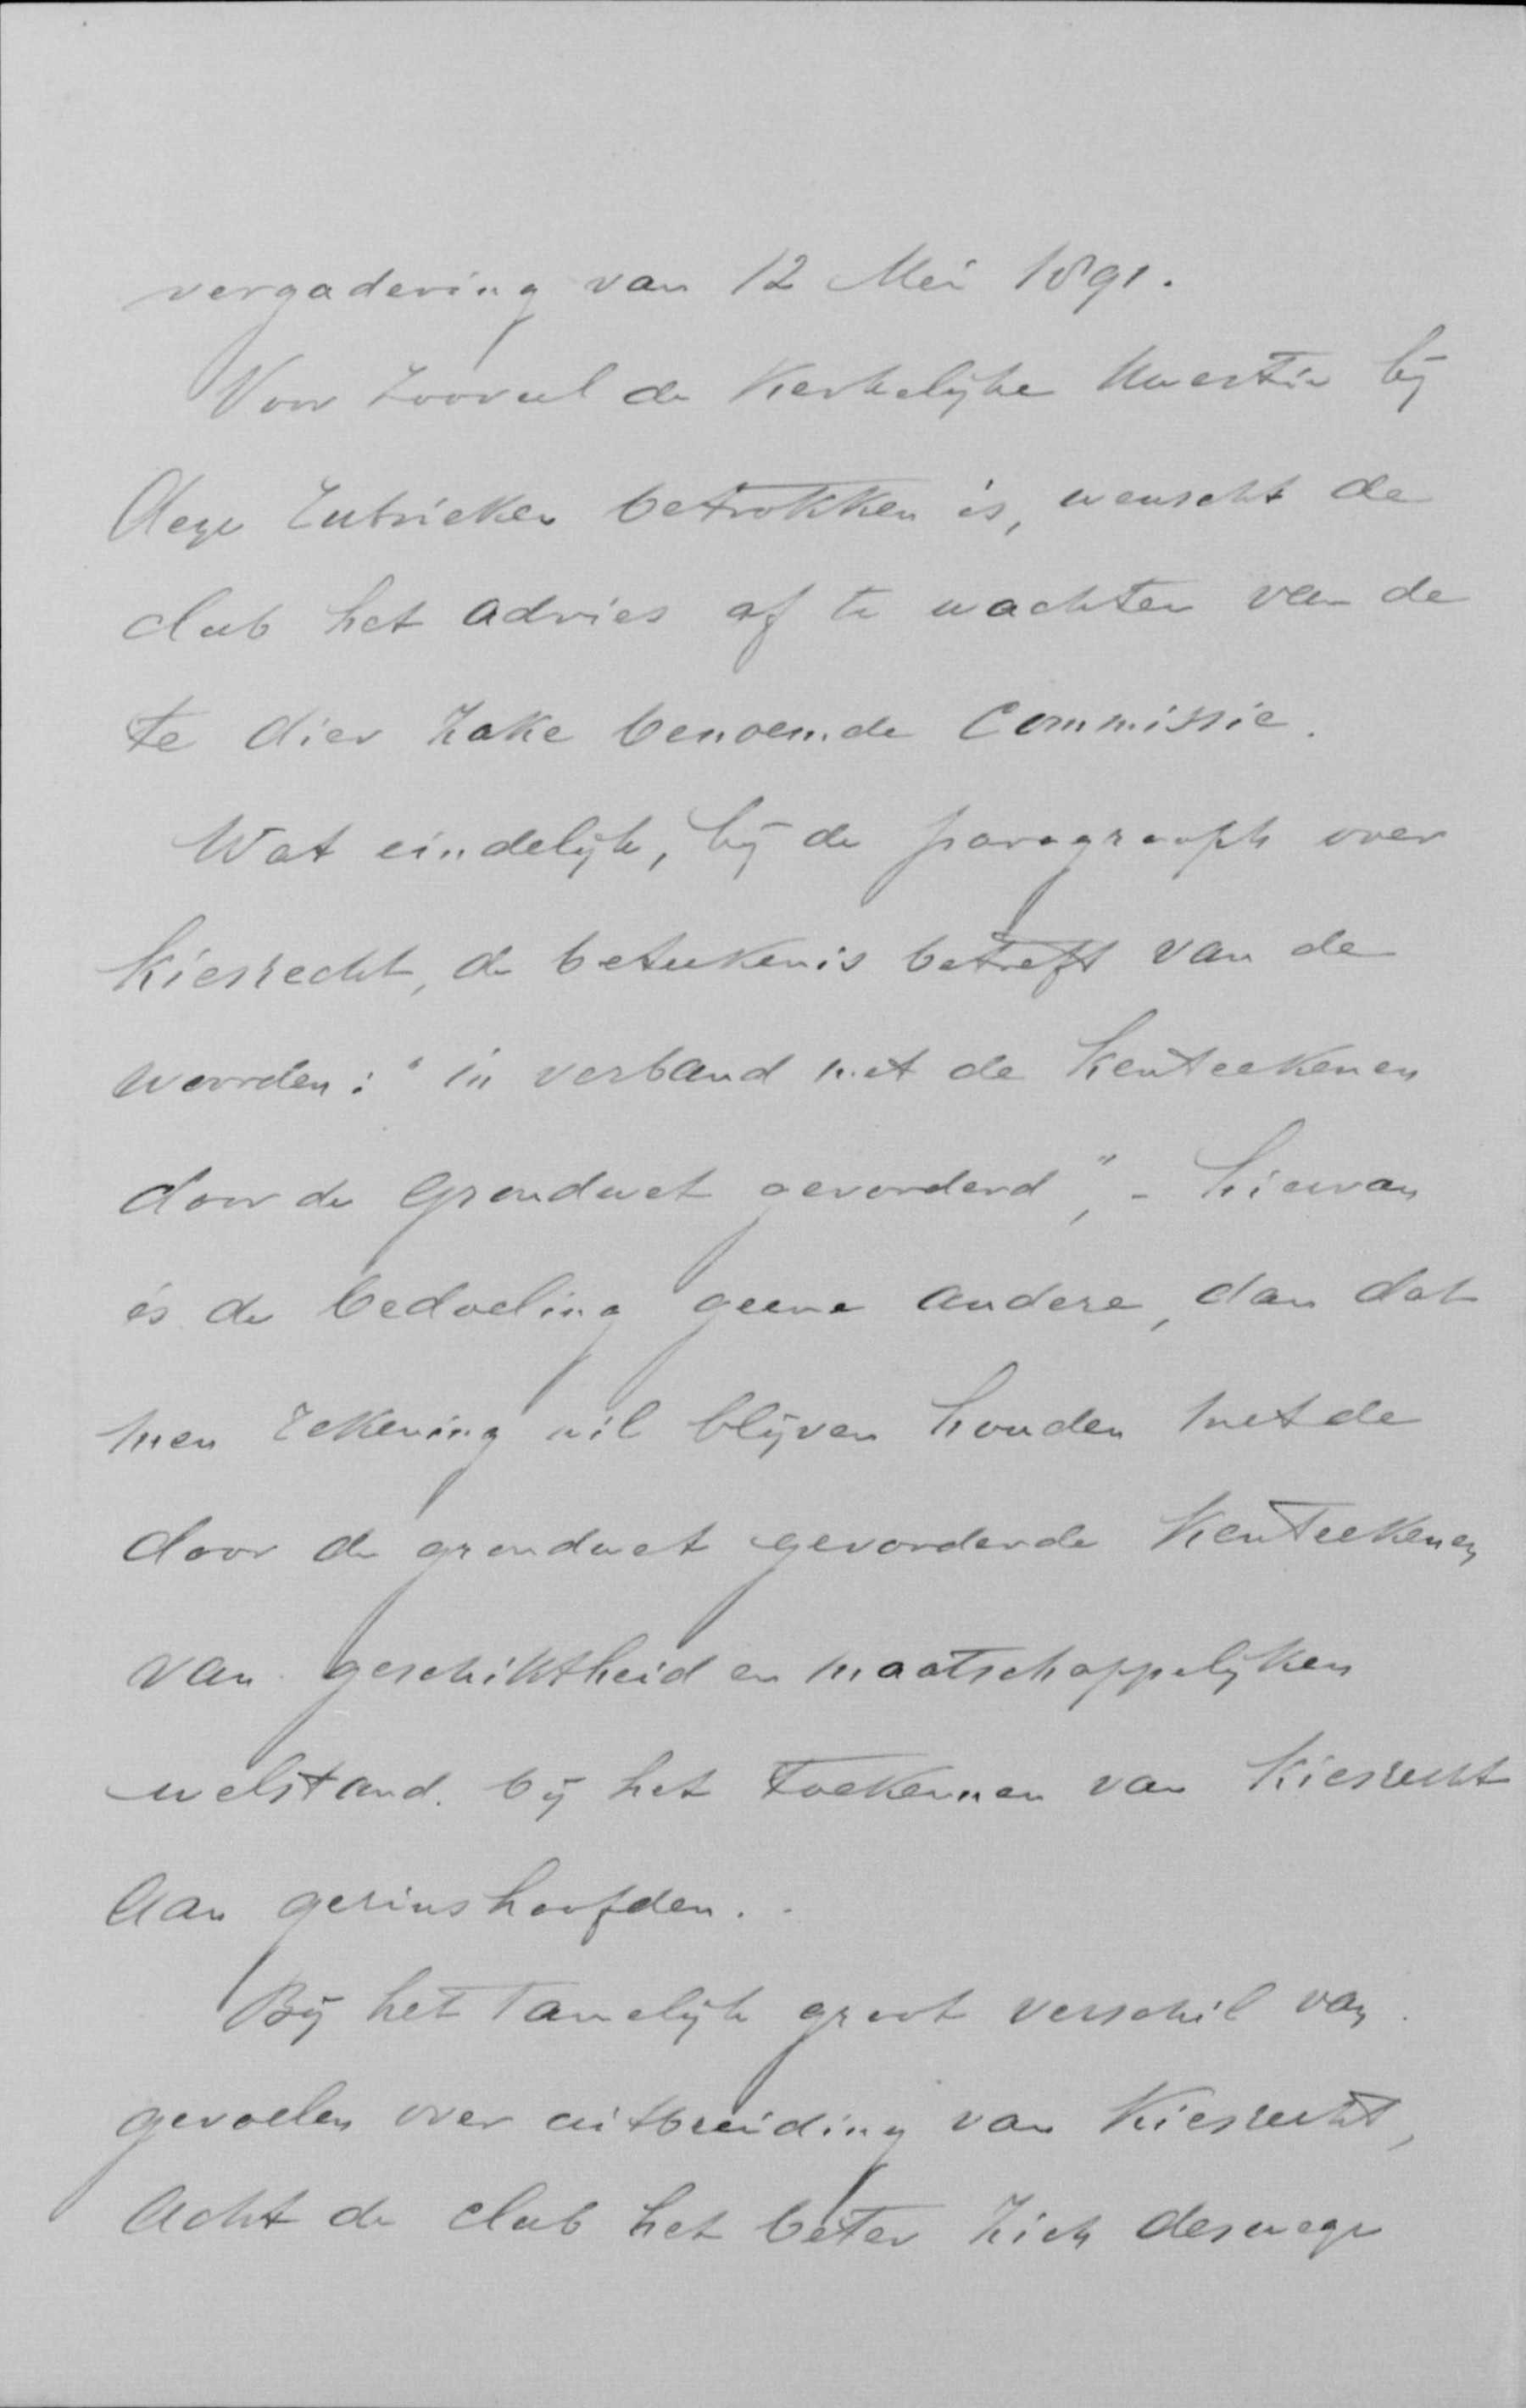 vergadering van 12 Mei 1891.
Voor zooveel de Kerkelijke Kwestie bij
deze rubrieken betrokken is, wenscht de
club het advies af te wachten van de
te dier zake benoemde Commissie.
Wat eindelijk, bij de paragraaph over
kiesrecht, de beteekenis betreft van de
woorden: "in verband met de kenteekenen
door de Grondwet gevorderd", - hiervan
is de bedoeling geene andere, dan dat
men rekening wil blijven houden met de
door de grondwet gevorderde Kenteekenen
van geschiktheid en maatschappelijken
welstand bij het toekennen van Kiesrecht
aan gezinshoofden.
Bij het tamelijk groot verschil van
gevoelen over uitbreiding van Kiesrecht,
acht de club het beter zich deswege